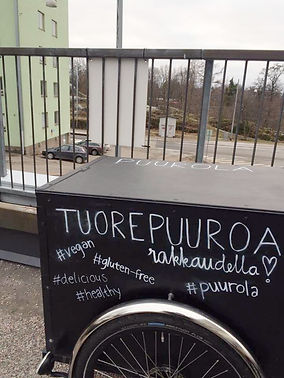 PUUROLA
TUOREPUUROA
rakkaudella!
#vegan
#gluten-free
#delicious
#healthy
#puurola